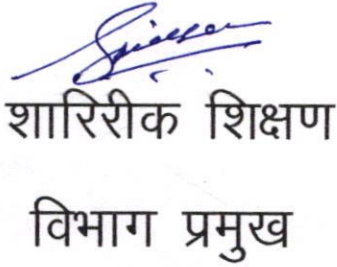 शारिरीक शिक्षण
विभाग प्रमुख